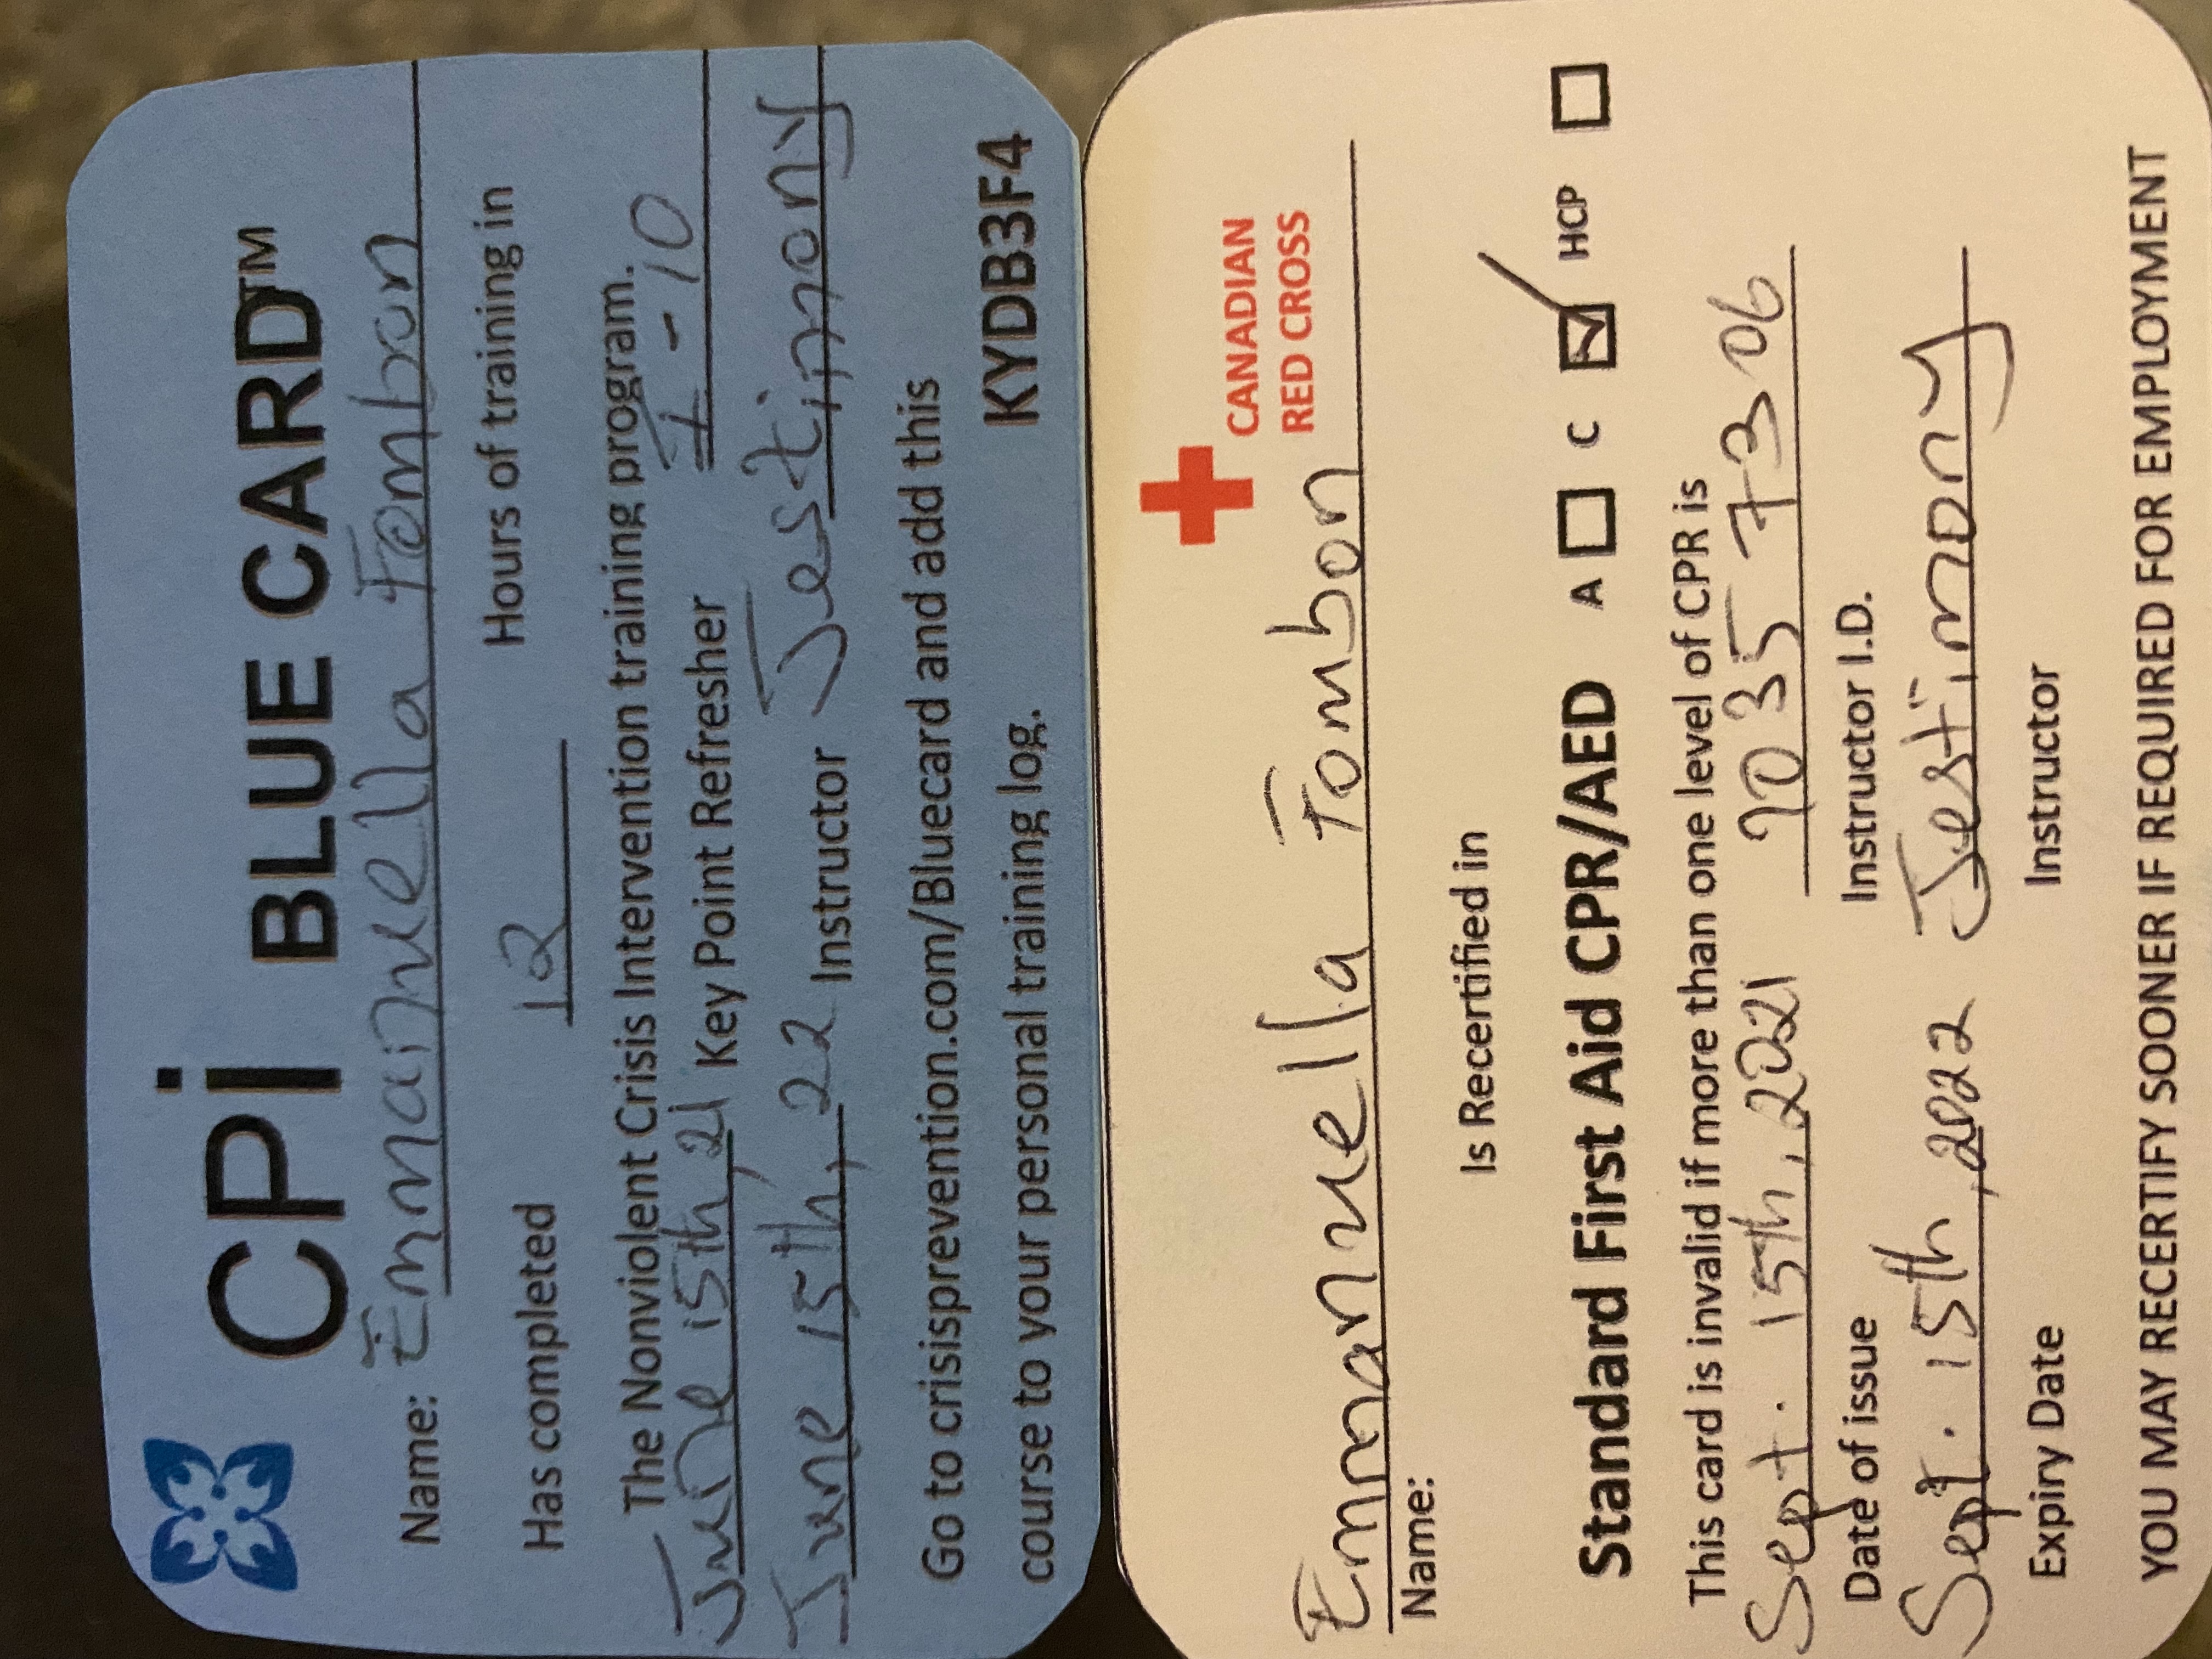 CPI BLUE CARD™
Name: Emmanuella Fombon
Has completed 12 Hours of training in
The Nonviolent Crisis Intervention training program.
June 15th, 21 Key Point Refresher I-10
June 15th, 22 Instructor Testimony
Go to crisisprevention.com/Bluecard and add this
course to your personal training log. KYDB3F4
CANADIAN
RED CROSS
Emmanuella Fombon
Name:
Is Recertified in
Standard First Aid CPR/AED A ☐ C ☑ HCP ☐
This card is invalid if more than one level of CPR is
Sept. 15th, 2021 90357306
Date of issue Instructor I.D.
Sept. 15th, 2022 Testimony
Expiry Date Instructor
YOU MAY RECERTIFY SOONER IF REQUIRED FOR EMPLOYMENT